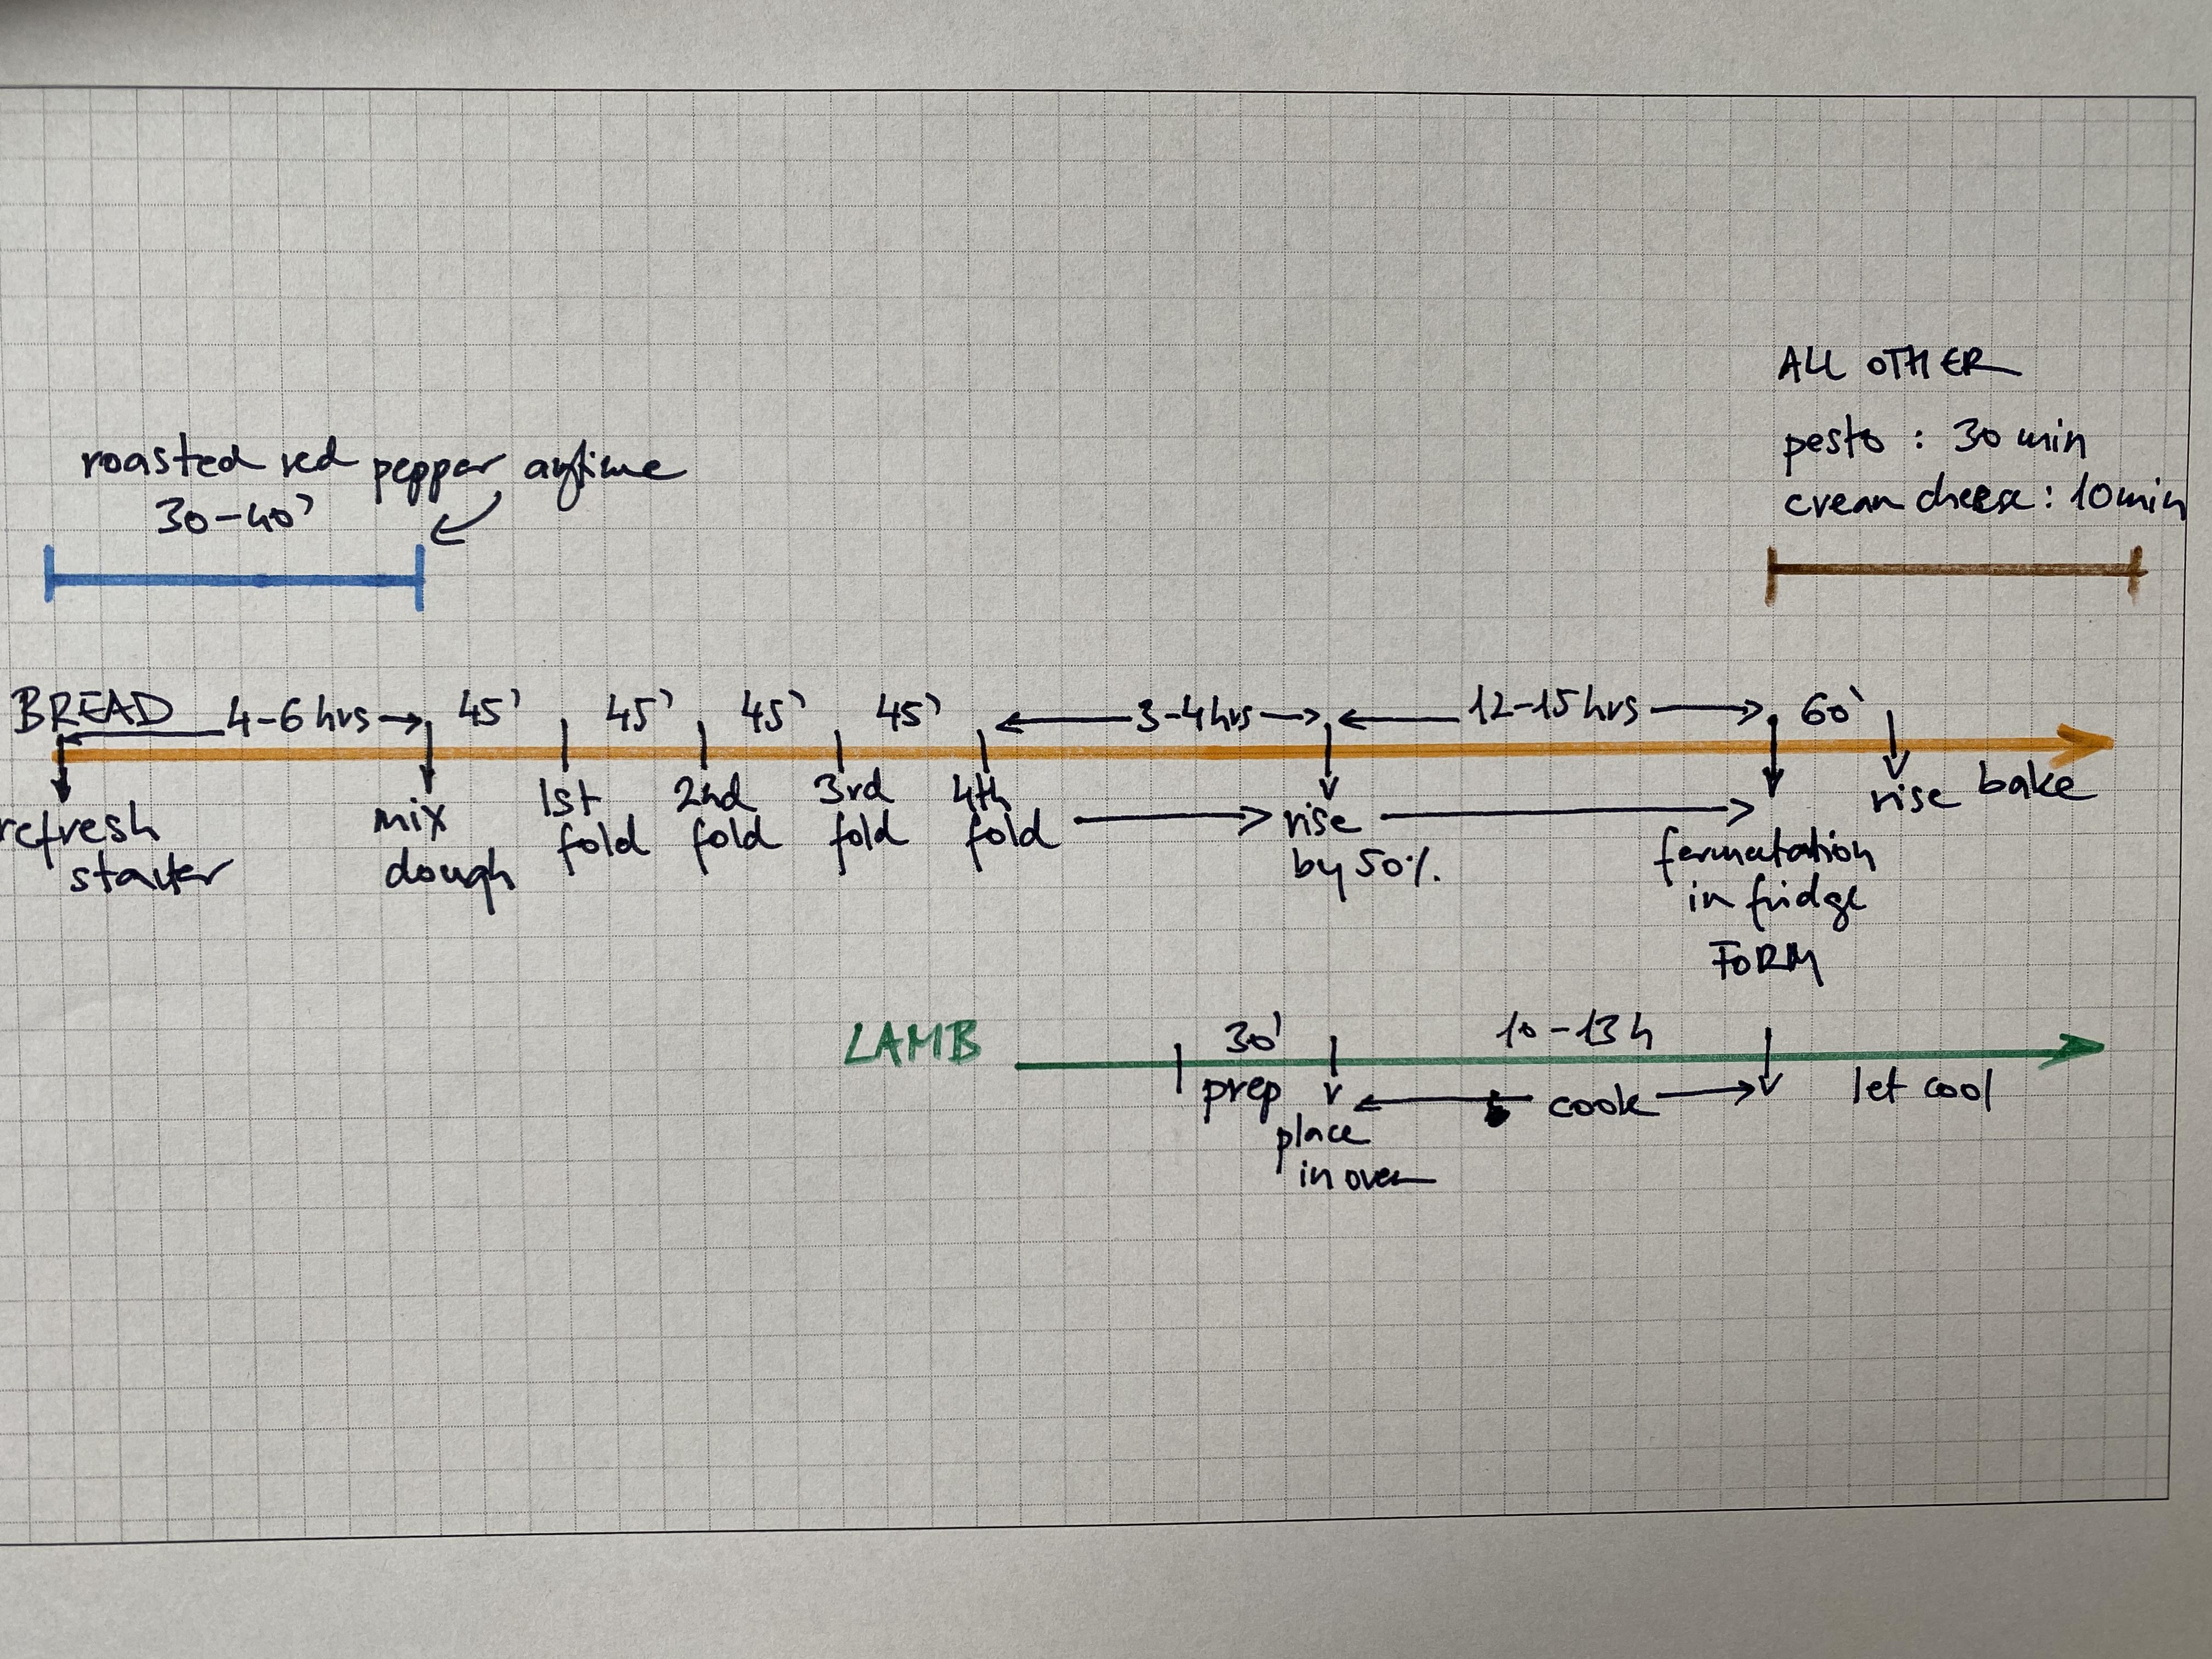 ALL OTHER
pesto : 30 min
cream cheese : 10min
roasted red pepper anytime
30-40'
BREAD 4-6 hrs 45' 45' 45' 45' 3-4 hrs 12-15 hrs 60'
refresh
starter
mix
dough
1st
fold
2nd
fold
3rd
fold
4th
fold
rise
by 50%.
fermentation
in fridge
FORM
rise bake
LAMB
30'
prep
place
in oven
10-13 h
cook
let cool